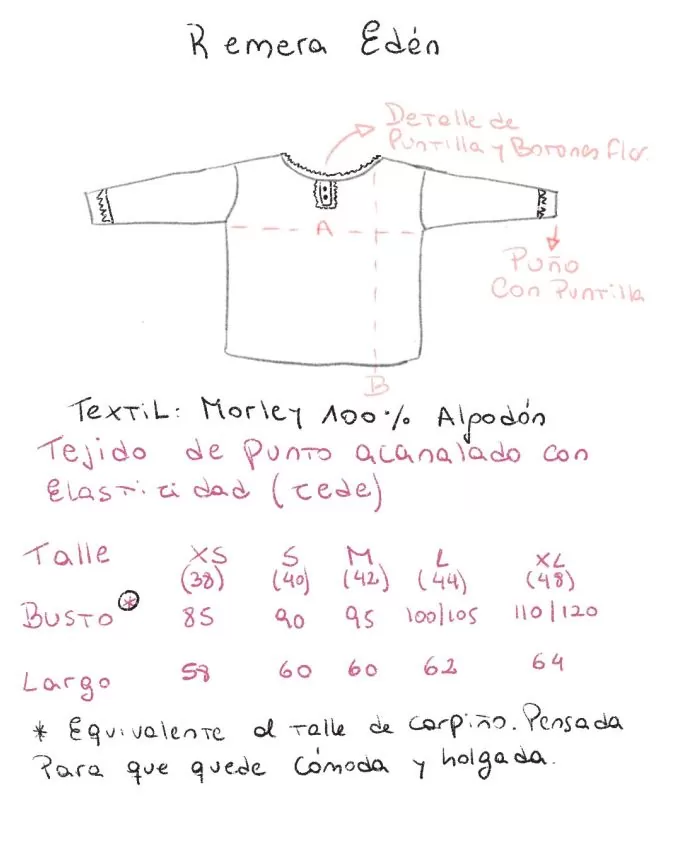 Remera Edén
Detalle de
Puntilla y Botones flor.
A
Puño
Con Puntilla
B
Textil: Morley 100% Alpodón
Tejido de punto acanalado con
Elasticidad (cede)
Talle XS S M L XL
(38) (40) (42) (44) (48)
Busto* 85 90 95 100/105 110/120
Largo 58 60 60 62 64
* Equivalente al talle de corpiño. Pensada
Para que quede cómoda y holgada.